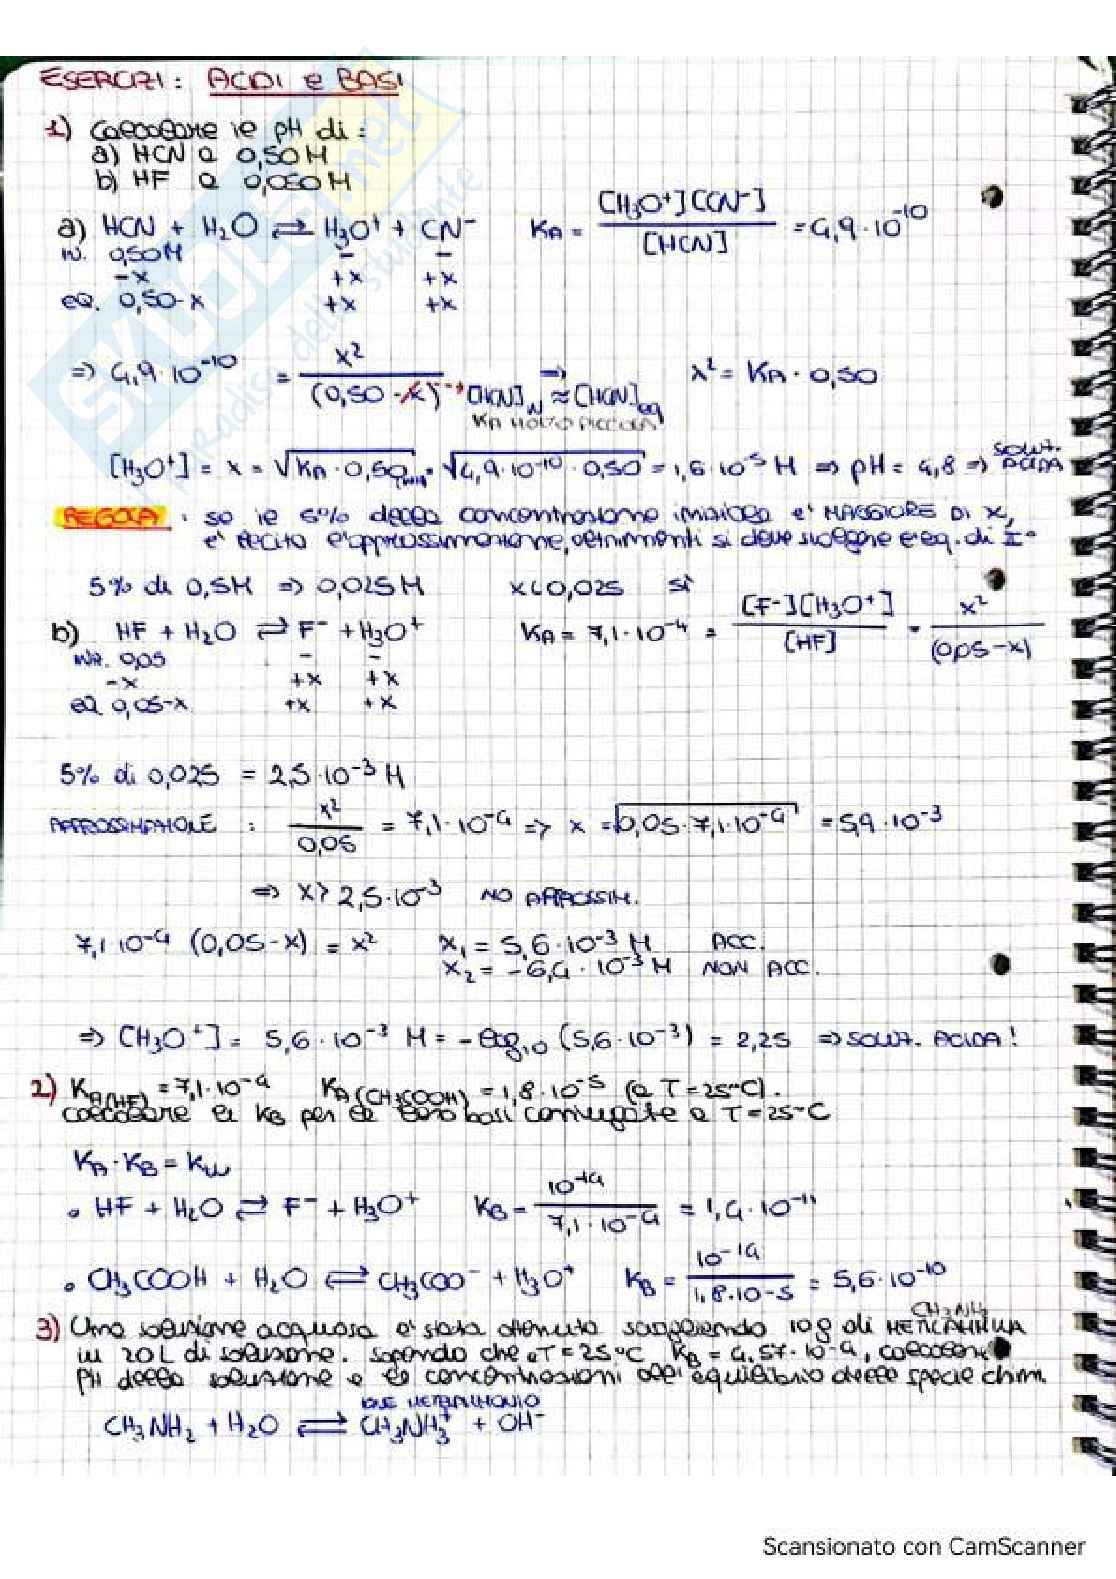 ESERCIZI: ACIDI e BASI
1) Calcolare il pH di:
a) HCN a 0,50M
b) HF a 0,050M
a) HCN + H₂O ⇌ H₃O⁺ + CN⁻ KA = [H₃O⁺][CN⁻] / [HCN] = 4,9·10⁻¹⁰
IN. 0,50M - -
-x +x +x
eq. 0,50-x +x +x
=> 4,9·10⁻¹⁰ = x² / (0,50-x) → [HCN]IN ≈ [HCN]eq => x² = KA·0,50
KA MOLTO PICCOLA
[H₃O⁺] = x = √KA·0,50 = √4,9·10⁻¹⁰·0,50 = 1,6·10⁻⁵ M => pH = 4,8 => SOLUZ. ACIDA
REGOLA: se il 5% della concentrazione iniziale e' MAGGIORE DI x,
e' lecita l'approssimazione, altrimenti si deve svolgere l'eq. di II°
5% di 0,5M => 0,025M x<0,025 sì
b) HF + H₂O ⇌ F⁻ + H₃O⁺ KA = 7,1·10⁻⁴ = [F⁻][H₃O⁺] / [HF] = x² / (0,05-x)
INIZ. 0,05 - -
-x +x +x
eq 0,05-x +x +x
5% di 0,025 = 2,5·10⁻³ M
APPROSSIMAZIONE: x² / 0,05 = 7,1·10⁻⁴ => x = √0,05·7,1·10⁻⁴ = 5,9·10⁻³
=> x > 2,5·10⁻³ NO APPROSSIM.
7,1·10⁻⁴ (0,05-x) = x² x₁ = 5,6·10⁻³ M ACC.
x₂ = -6,4·10⁻³ M NON ACC.
=> [H₃O⁺] = 5,6·10⁻³ M = -log₁₀ (5,6·10⁻³) = 2,25 => SOLUZ. ACIDA!
2) KA(HF) = 7,1·10⁻⁴ KA(CH₃COOH) = 1,8·10⁻⁵ (a T=25°C).
calcolare la KB per le loro basi coniugate a T=25°C
KA·KB = KW
• HF + H₂O ⇌ F⁻ + H₃O⁺ KB = 10⁻¹⁴ / 7,1·10⁻⁴ = 1,4·10⁻¹¹
• CH₃COOH + H₂O ⇌ CH₃COO⁻ + H₃O⁺ KB = 10⁻¹⁴ / 1,8·10⁻⁵ = 5,6·10⁻¹⁰
CH₃NH₂
3) Una soluzione acquosa e' stata ottenuta sciogliendo 10g di METILAMMINA
in 20L di soluzione. Sapendo che a T=25°C KB = 4,57·10⁻⁴, calcolare
pH della soluzione e le concentrazioni all'equilibrio delle specie chim.
IONE METILAMMONIO
CH₃NH₂ + H₂O ⇌ CH₃NH₃⁺ + OH⁻
SKUOLA.net
il paradiso dello studente
Scansionato con CamScanner